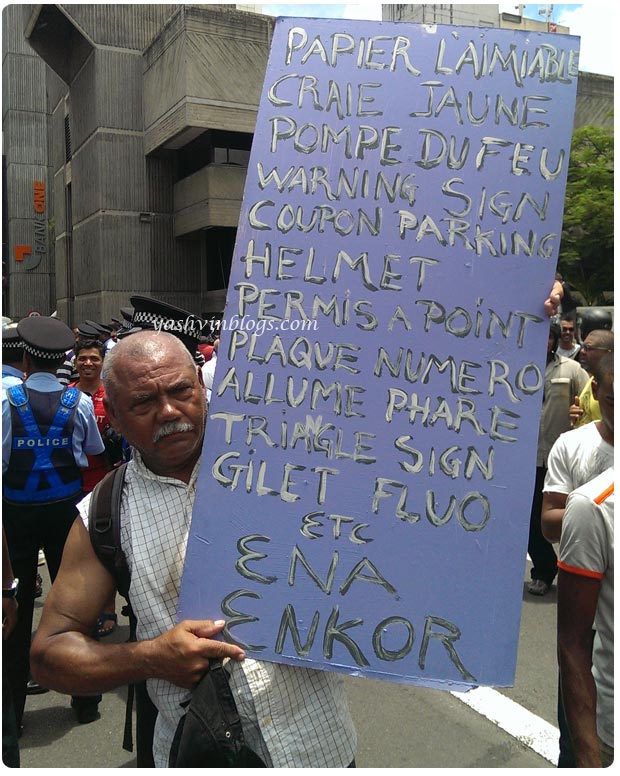 PAPIER L'AIMIABLE
CRAIE JAUNE
POMPE DU FEU
WARNING SIGN
COUPON PARKING
HELMET
PERMIS A POINT
PLAQUE NUMERO
ALLUME PHARE
TRIANGLE SIGN
GILET FLUO
ETC
ENA
ENKOR
BANKONE
yashvinblogs.com
POLICE